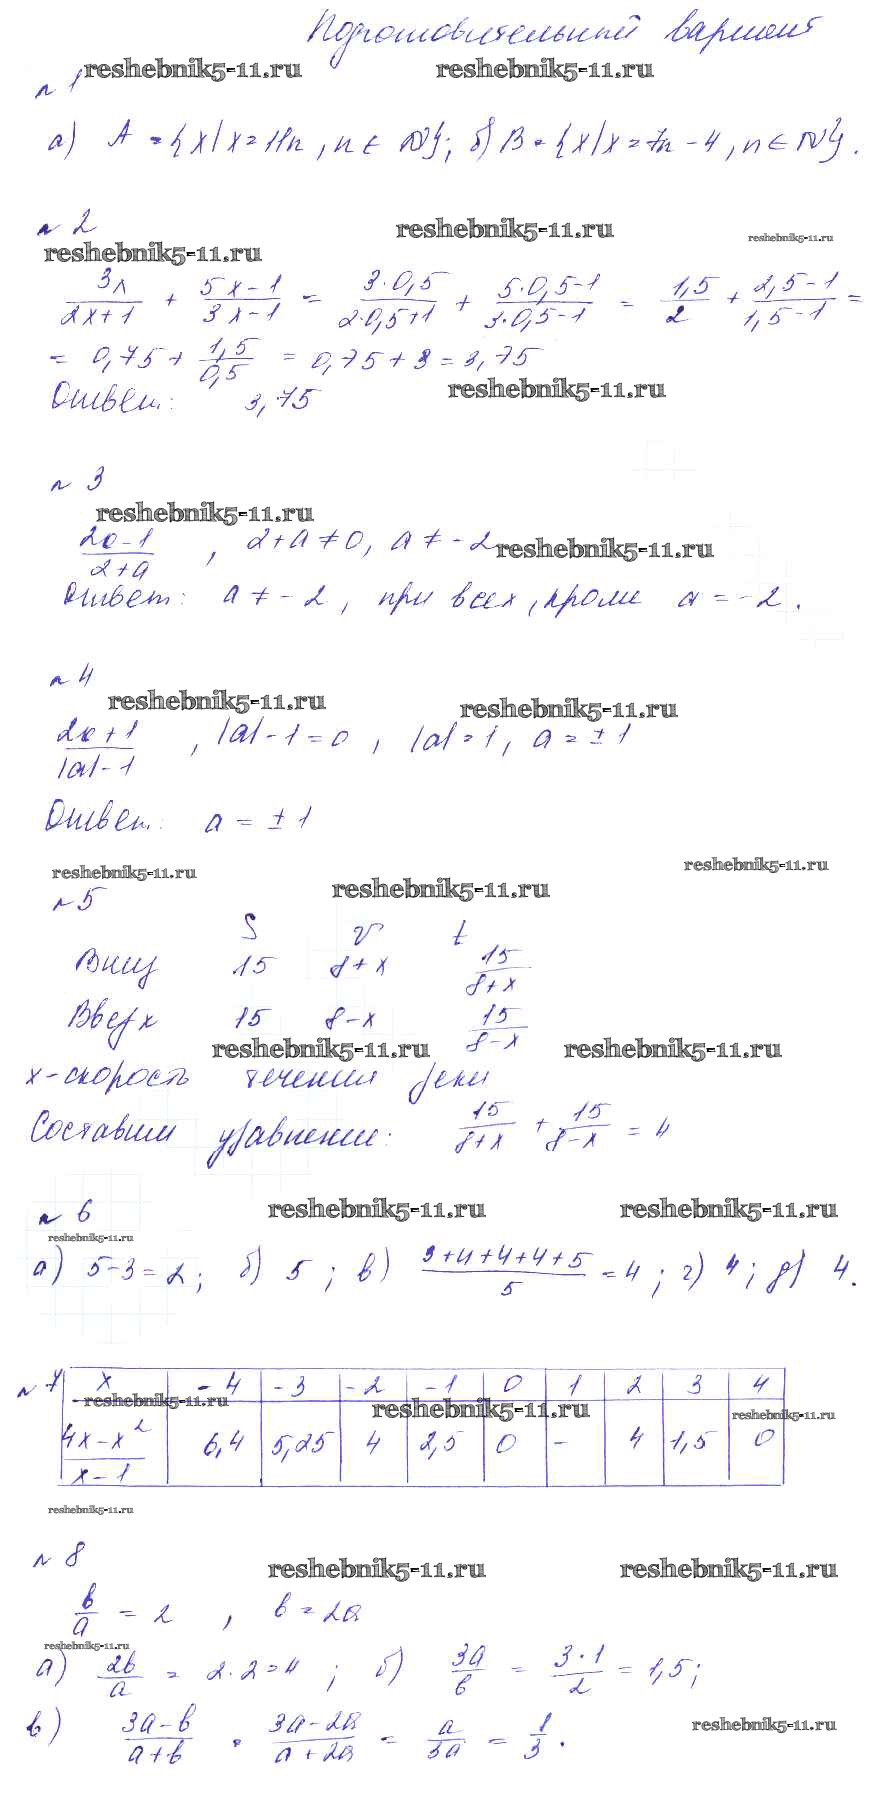 Подготовительный вариант
reshebnik5-11.ru reshebnik5-11.ru
№ 1
а) A = {x/x = 11n, n ∈ N}; б) B = {x/x = 7n - 4, n ∈ N}.
№ 2 reshebnik5-11.ru reshebnik5-11.ru
reshebnik5-11.ru
3x/(2x+1) + (5x-1)/(3x-1) = (3·0,5)/(2·0,5+1) + (5·0,5-1)/(3·0,5-1) = 1,5/2 + (2,5-1)/(1,5-1) =
= 0,75 + 1,5/0,5 = 0,75 + 3 = 3,75
Ответ: 3,75 reshebnik5-11.ru
№ 3
reshebnik5-11.ru
(2a-1)/(2+a), 2+a ≠ 0, a ≠ -2 reshebnik5-11.ru
Ответ: a ≠ -2, при всех, кроме a = -2.
№ 4
reshebnik5-11.ru reshebnik5-11.ru
(2a+1)/(|a|-1), |a|-1=0, |a|=1, a = ±1
Ответ: a = ±1
reshebnik5-11.ru reshebnik5-11.ru reshebnik5-11.ru
№ 5
S v t
Вниз 15 8+x 15/(8+x)
Вверх 15 8-x 15/(8-x)
reshebnik5-11.ru reshebnik5-11.ru
x - скорость течения реки
Составим уравнение: 15/(8+x) + 15/(8-x) = 4
№ 6 reshebnik5-11.ru reshebnik5-11.ru
reshebnik5-11.ru
а) 5-3=2; б) 5; в) (3+4+4+4+5)/5 = 4; г) 4; д) 4.
№ 7 x -4 -3 -2 -1 0 1 2 3 4
reshebnik5-11.ru reshebnik5-11.ru reshebnik5-11.ru
(4x-x²)/(x-1) 6,4 5,25 4 2,5 0 - 4 1,5 0
reshebnik5-11.ru
№ 8
reshebnik5-11.ru reshebnik5-11.ru
b/a = 2, b = 2a
reshebnik5-11.ru
а) 2b/a = 2·2=4; б) 3a/b = (3·1)/2 = 1,5;
в) (3a-b)/(a+b) = (3a-2a)/(a+2a) = a/3a = 1/3.
reshebnik5-11.ru